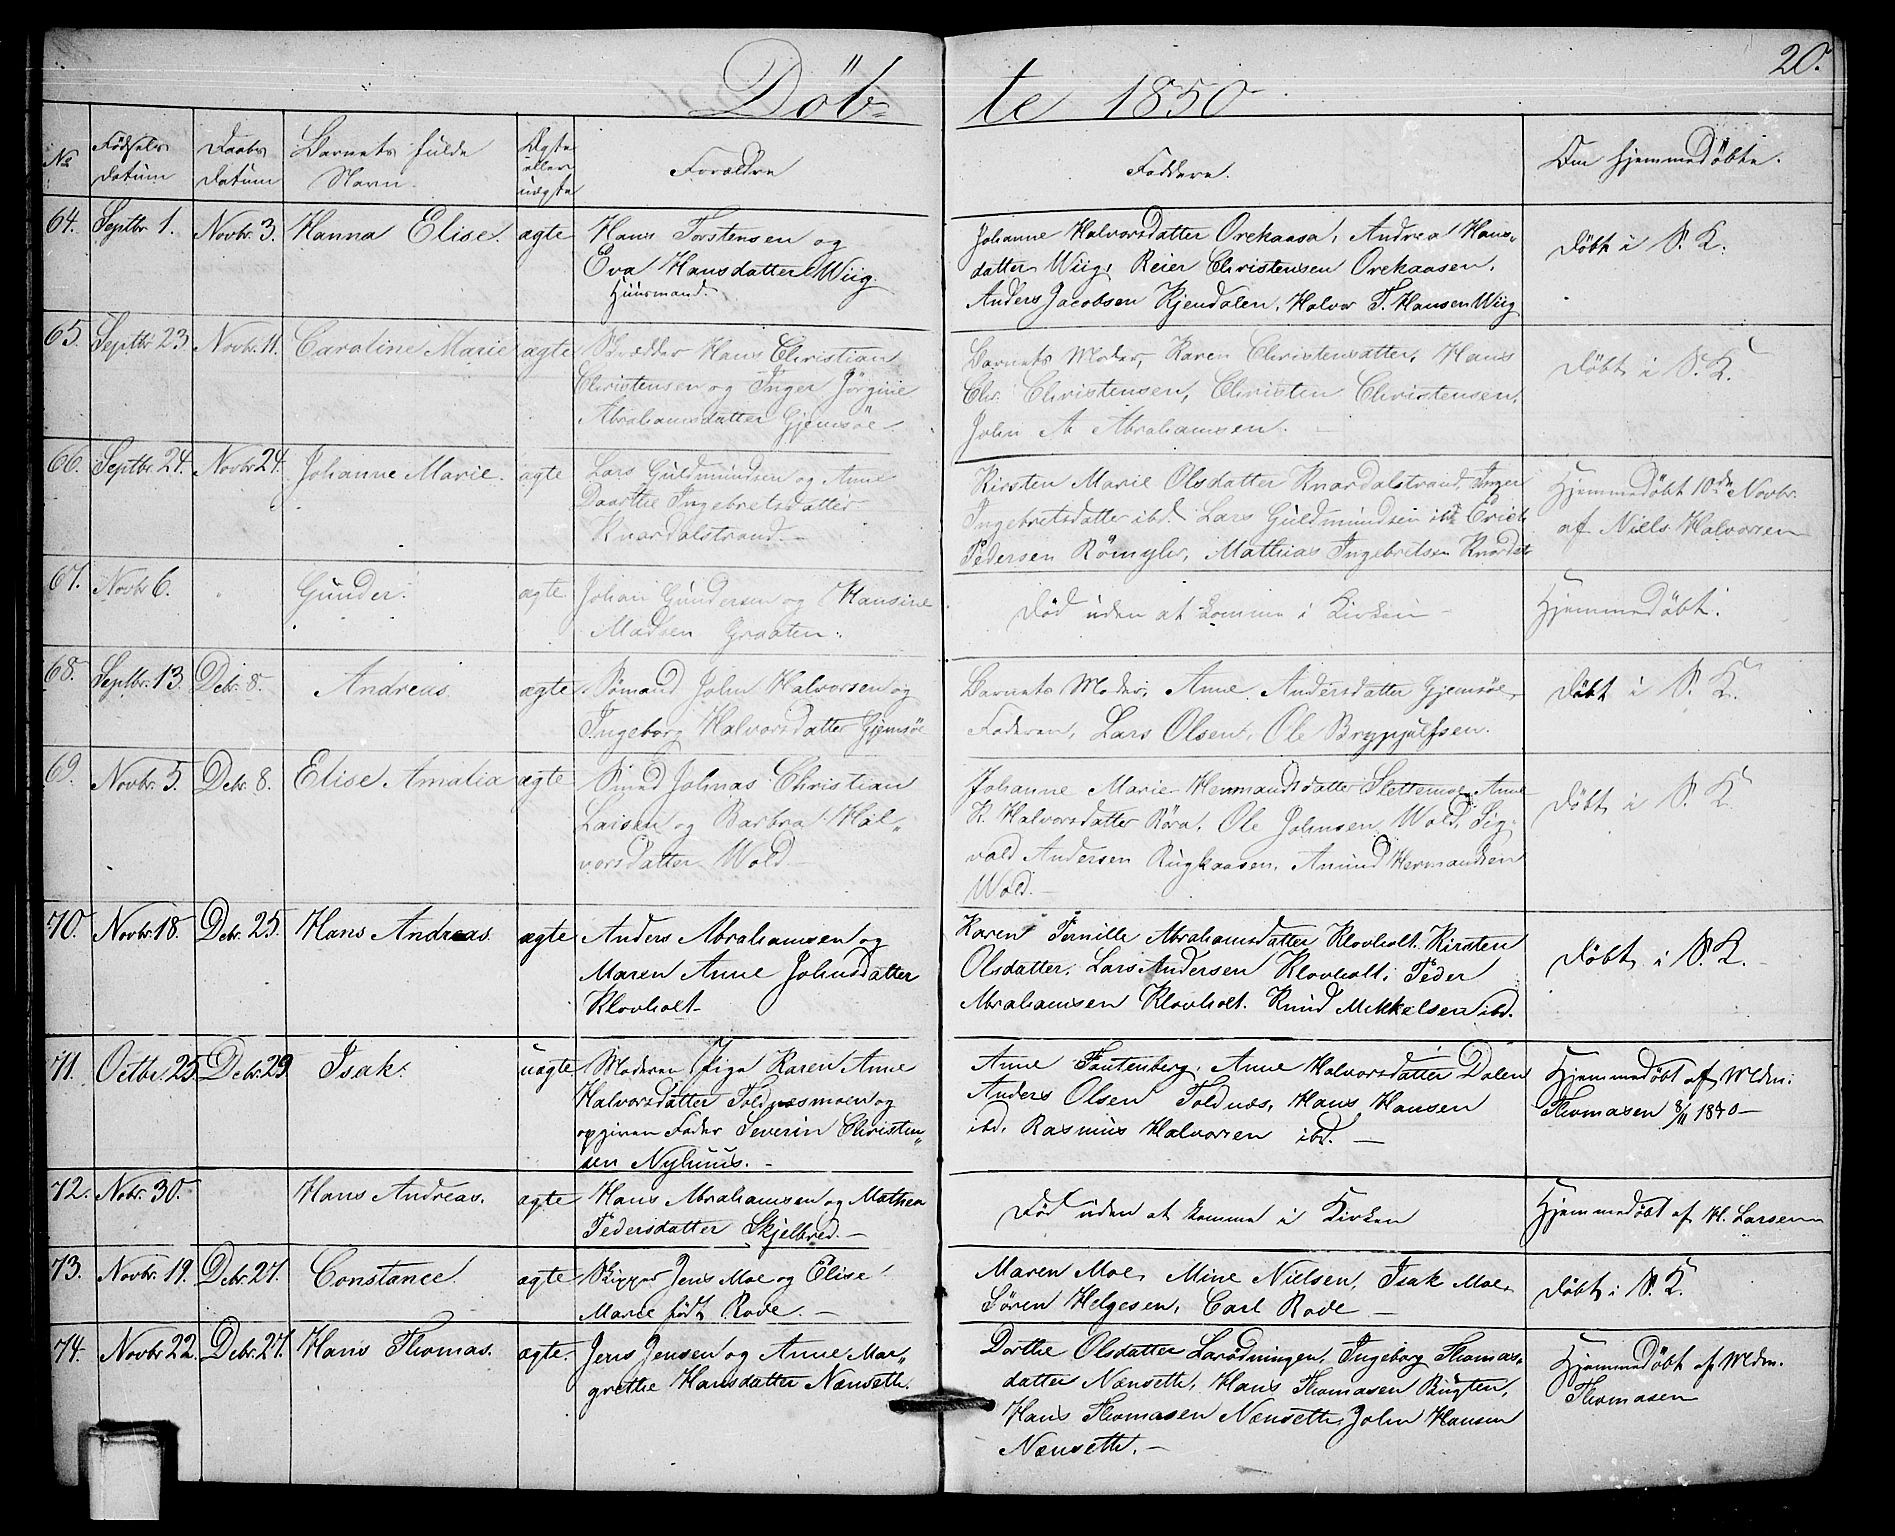 Döb-te 1850
20.
No
Födsels datum
Daabs datum
Barnets fulde Navn.
Ægte eller uægte
Forældre
Faddere.
Om hjemmedöbte.
64. Septbr. 1. Novbr. 3. Hanna Elise. ægte Hans Torstensen og
Eva Hansdatter Wiig
Huusmand.
Johanne Halvorsdatter Orekaasa, Andrea Hans-
datter Wiig, Reier Christensen Orekaasen,
Anders Jacobsen Kjendalen, Halvor T. Hansen Wiig
Döbt i S. K.
65. Septbr 23. Novbr. 11. Caroline Marie ægte Skrædder Hans Christian
Christensen og Inger Jörgine
Abrahamsdatter Gjemsöe
Barnets Moder, Karen Christensdatter, Hans
Chr. Christensen, Christen Christensen,
John A Abrahamsen.
Döbt i S. K.
66. Septbr. 24. Novbr 24. Johanne Marie. ægte Lars Guldmundsen og Anne
Daarthe Ingebretsdatter
Knardalstrand.
Kirsten Marie Olsdatter Knardalstrand, Inger
Ingebretsdatter ibd. Lars Guldmundsen ibd Erich
Pedersen Römyhr, Mathias Ingebritsen Knardst
Hjemmedöbt 10de Novbr.
af Niels Halvorsen
67. Novbr 6. Gunder. ægte. Johan Gundersen og Hansine
Madsen Graaten.
Död uden at komme i Kirken
Hjemmedöbt.
68. Septbr. 13. Debr. 8. Andreas ægte Sömand John Halvorsen og
Ingeborg Halvorsdatter Gjemsöe
Barnets Moder, Anne Andersdatter Gjemsöe,
Faderen, Lars Olsen, Ole Brynjulfsen.
Döbt i S. K.
69. Novbr. 5. Debr. 8. Elise Amalia ægte Smed Johnas Christian
Larsen og Barbra Hal-
vorsdatter Wold
Johanne Marie Hermandsdatter Slettemoe, Anne
K. Halvorsdatter Röra, Ole Johnsen Wold, Sig-
vald Andersen Rugkaasen, Amund Hermandsen
Wold.
Döbt i S. K.
70. Novbr. 18. Debr. 25. Hans Andreas. ægte Anders Abrahamsen og
Maren Anne Johnsdatter
Klovholt
Karen Pernille Abrahamsdatter Klovholt. Kirsten
Olsdatter, Lars Andersen Klovholt, Peder
Abrahamsen Klovholt. Knud Mikkelsen ibd.
Döbt i S. K.
71. Octbr. 25 Debr. 29 Isak. uægte Moderen Pige Karen Anne
Halvorsdatter Foldnæsmoen og
opgiven Fader Severin Christen-
sen Nyhuus.
Anne Fautenberg, Anne Halvorsdatter Dalen
Anders Olsen Foldnæs, Hans Hansen
ibd. Rasmus Halvorsen ibd.
Hjemmedöbt af Mdm:
Thomasen 8/11 1850
72. Nobr. 30. Hans Andreas. ægte Hans Abrahamsen og Mathea
Pedersdatter Skjelbred.
Död uden at komme i Kirken
Hjemmedöbt af H. Larsen
73. Novbr. 19. Debr. 27. Constance. ægte Skipper Jens Moe og Elise
Marie födt Rode.
Maren Moe, Mine Nielsen, Isak Moe,
Sören Helgesen, Carl Rode
Döbt i S. K.
74. Novbr 22. Debr. 27. Hans Thomas. ægte. Jens Jensen og Anne Mar-
grethe Hansdatter Nænseth.
Dorthe Olsdatter Larödningen, Ingeborg Thomas-
datter Nænseth, Hans Thomasen Bugten,
Hans Thomasen Nænseth, John Hansen
Nænseth.
Hjemmedöbt af Mdm.
Thomasen